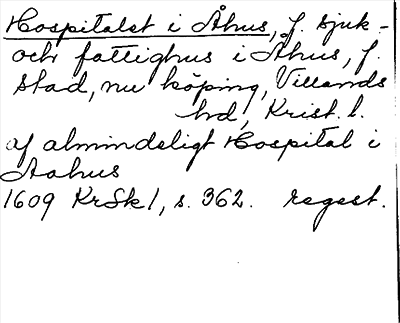 Hospitalet i Åhus, f. sjuk-
och fattighus i Åhus, f.
stad, nu köping, Villands
hd, Krist. l.
af almindeligt Hospital i
Aahus
1609 KrSk 1, s. 362. regest.